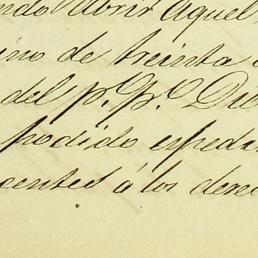 ndo Abrir aquel
ino de treinta
del p.p.º Du
podido espeda
centes á los derec